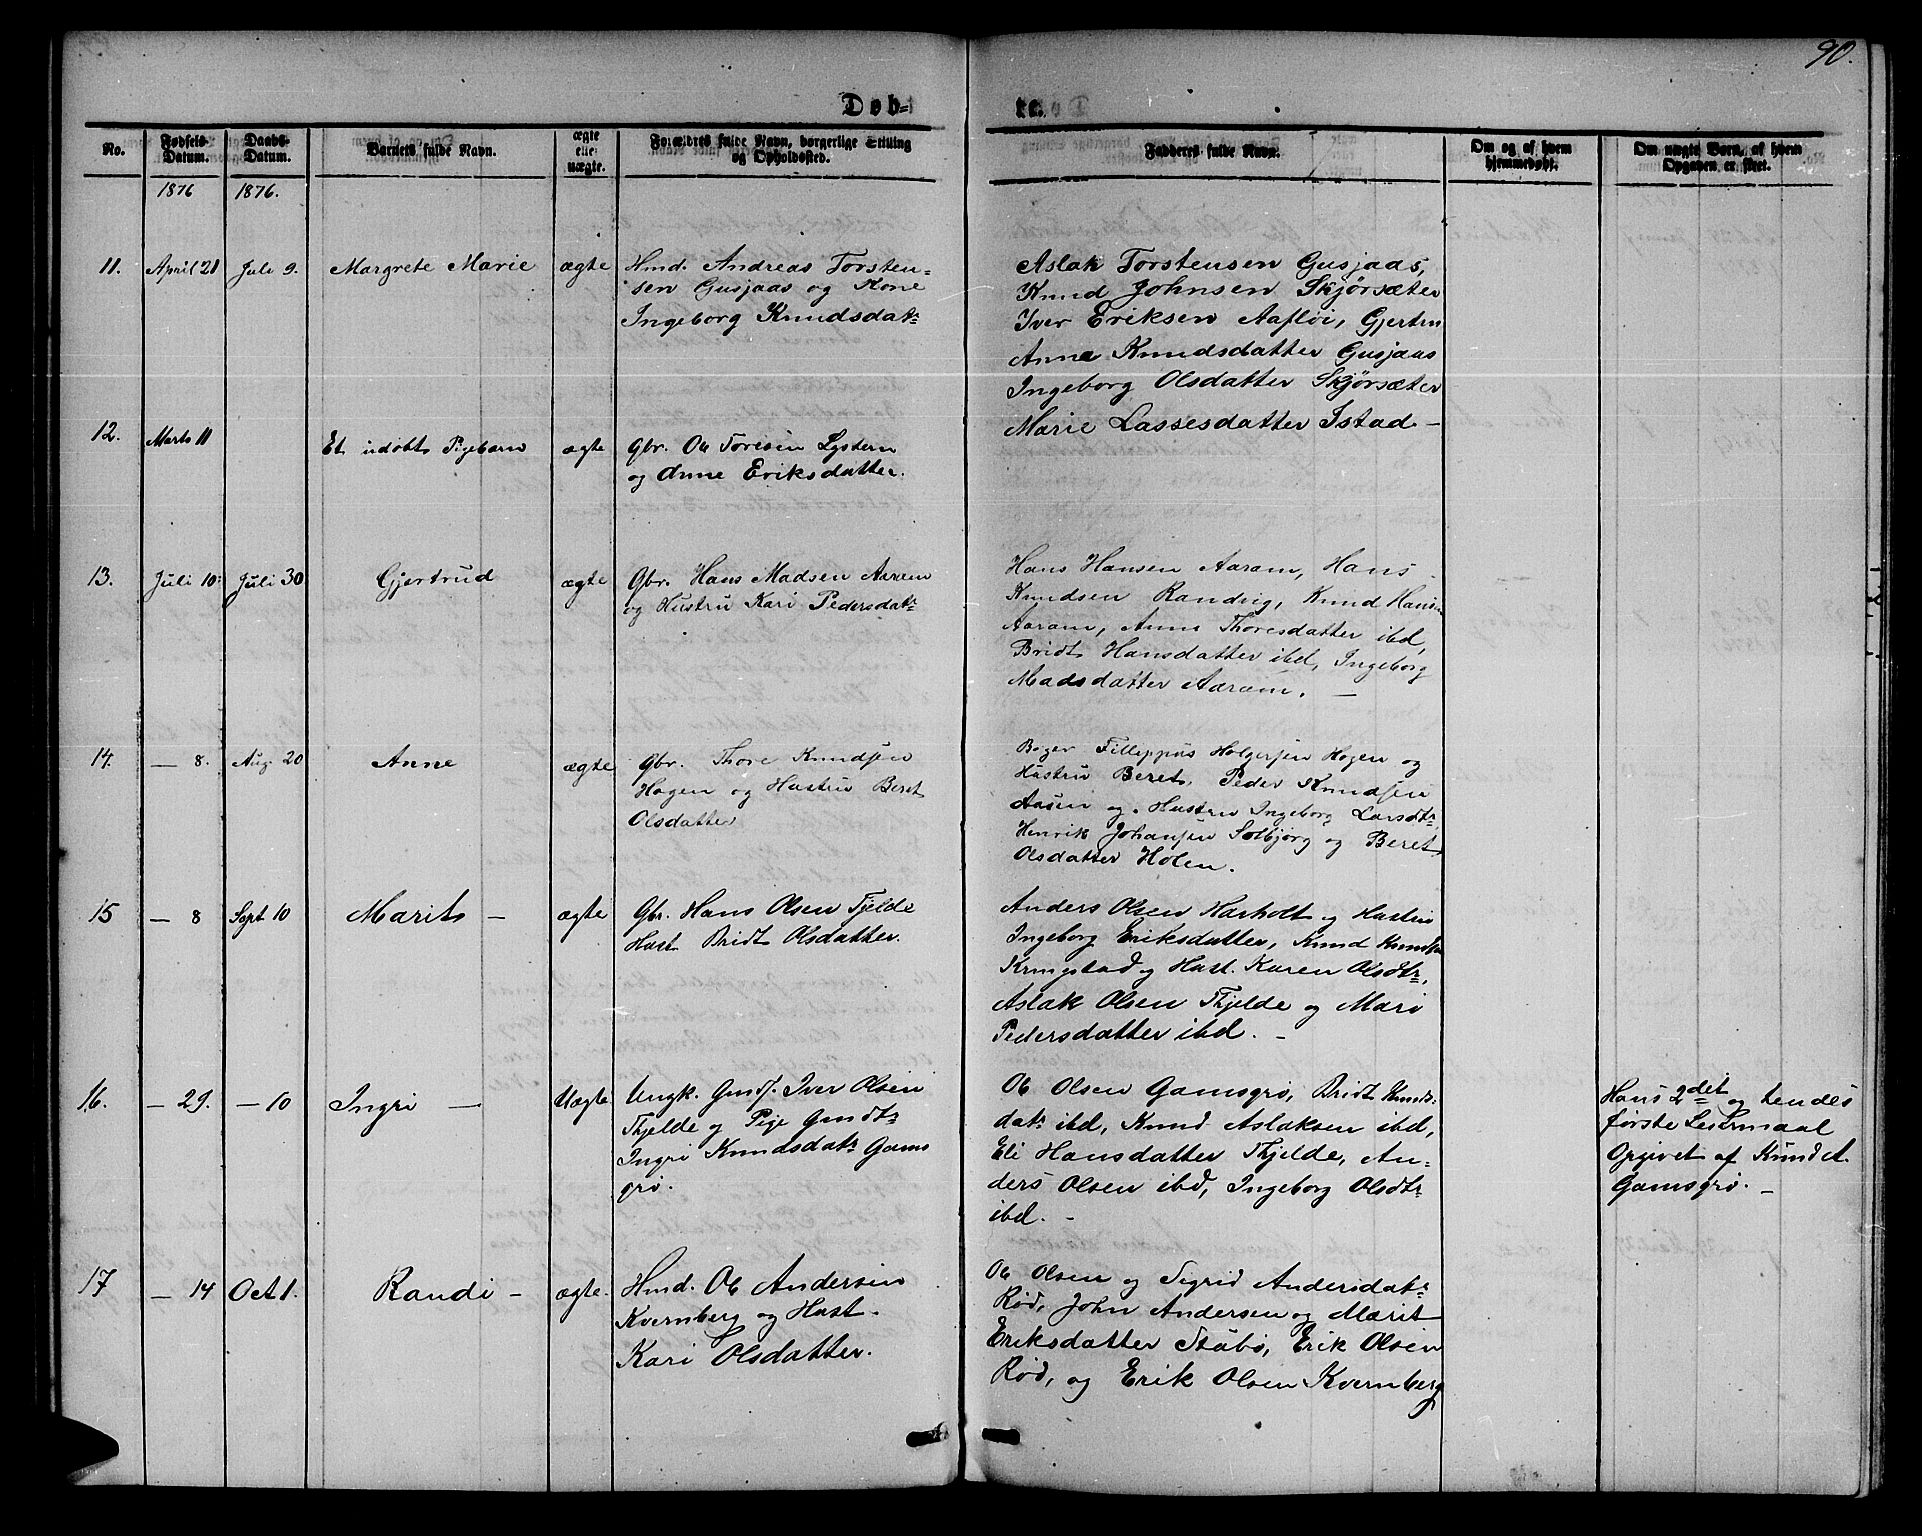 90.
Døb-
te.
No.
Fødsels-
Datum.
Daabs-
Datum.
Barnets fulde Navn.
ægte
eller
uægte.
Forældres fulde Navn, borgerlige Stilling
og Opholdssted.
Fadderes fulde Navn.
Om og af hvem
hjemmedøbt.
Om uægte Børn, af hvem
Opgaven er skeet.
1876
1876.
11.
April 21
Juli 9.
Margrete Marie
ægte
Hmd. Andreas Torsten-
sen Gusjaas og Kone
Ingeborg Knudsdatr
Aslak Torstensen Gusjaas,
Knud Johnsen Skjørsæter
Iver Eriksen Aafløi, Gjertru
Anne Knudsdatter Gusjaas
Ingeborg Olsdatter Skjørsæter
Marie Lassesdatter Istad -
12.
Marts 11
Et udøbt Pigebarn
ægte
Gbr. Ole Toresen Lystern
og Anne Eriksdatter.
13.
Juli 10
Juli 30
Gjertrud
ægte
Gbr. Hans Madsen Aaram
og Hustru Kari Pedersdatr
Hans Hansen Aaram, Hans
Knudsen Randvig, Knud Hansen
Aaram, Anne Thoresdatter ibd,
Bridt Hansdatter ibd, Ingeborg
Madsdatter Aaram. -
14.
- 8.
Aug. 20
Anne
ægte
Gbr. Thore Knudsen
Hagen og Hustru Beret
Olsdatter
Filleppus Holgersen Hogen og
Hustru Beret. Peder Knudsen
Aasen og Hustru Ingeborg Larsdtr
Henrik Johansen Solbjørg og Beret
Olsdatter Holen.
15
- 8
Sept 10
Marit -
ægte
Gbr. Hans Olsen Tjelde
Hust Bridt Olsdatter.
Anders Olsen Harholt og Hustru
Ingeborg Eriksdatter, Knud Knudsen
Kringstad og Hust. Karen Olsdtr,
Aslak Olsen Thjelde og Mari
Pedersdatter ibd. -
16.
- 29.
- 10
Ingri -
Uægte
Ungk. Gmdf. Iver Olsen
Thjelde og Pige Gmdt
Ingri Knudsdatr Gams
grø.
Ole Olsen Gamsgrø, Bridt Knuds-
datr ibd, Knud Aslaksen ibd,
Eli Hansdatter Thjelde, An-
ders Olsen ibd, Ingeborg Olsdtr
ibd. -
Hans 2det og hendes
første Leiermaal
Opgivet af Knud A.
Gamsgrø. -
17
- 14
Oct 1.
Randi -
ægte.
Hmd. Ole Andersen
Kvernberg og Hust.
Kari Olsdatter.
Ole Olsen og Sigrid Andersdatr
Rød, John Andersen og Marit
Eriksdatter Stubø, Erik Olsen
Rød, og Erik Olsen Kvernberg